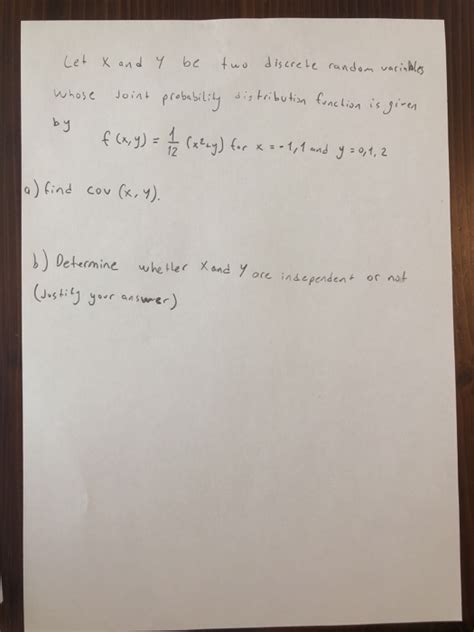 Let X and Y be two discrete random variables
whose joint probability distribution function is given
by
f(x,y) = 1/12 (x²+y) for x = -1,1 and y = 0,1,2
a) find cov (x, y).
b) Determine whether X and Y are independent or not
(Justify your answer)